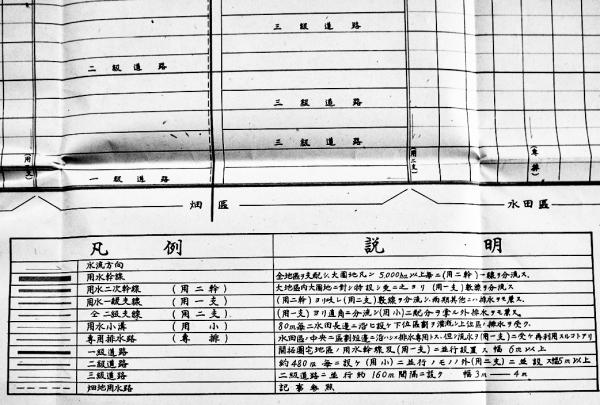 三級道路
二級道路
三級道路
三級道路
(用一支)
(用二支)
(専排)
一級道路
畑區
水田區
凡例 説明
水流方向
用水幹線 全地區ヲ支配シ、大團地凡ソ5,000ha以上毎ニ(用二幹)一線ヲ分流ス。
用水二次幹線 (用二幹) 大地區内大團地ニ対シ特設シ之ヨリ(用一支)数線ヲ分流ス
用水一級支線 (用一支) (用二幹)ヨリ岐レ(用二支)数線ヲ分流シ雨期其他ニハ排水ヲモ兼ス。
仝 二級支線 (用二支) (用一支)ヨリ直角ニ分流シ(用小)ニ配分ヲ掌ル外排水ヲモ兼ス。
用水小溝 (用小) 80m毎ニ水田長邊ニ沿ヒ設ケ下位區劃ヲ灌漑シ上位區ノ排水ヲ受ク。
専用排水路 (専排) 水田區ノ中央ニ區劃短邊ニ沿ハシメ排水専用トス、但シ流水ヲ(用一支)ニ受ケ再利用スルコトアリ
一級道路 開拓團宅地區ノ用水幹線及(用一支)ニ並行設置ス 幅6m以上
二級道路 約480m毎ニ設ケ(用小)ニ並行ノモノノ外(用二支)ニ並設ス幅5m以上
三級道路 二級道路ニ並行約160m間隔ニ設ク 幅3m──4m
畑地用水路 記事参照